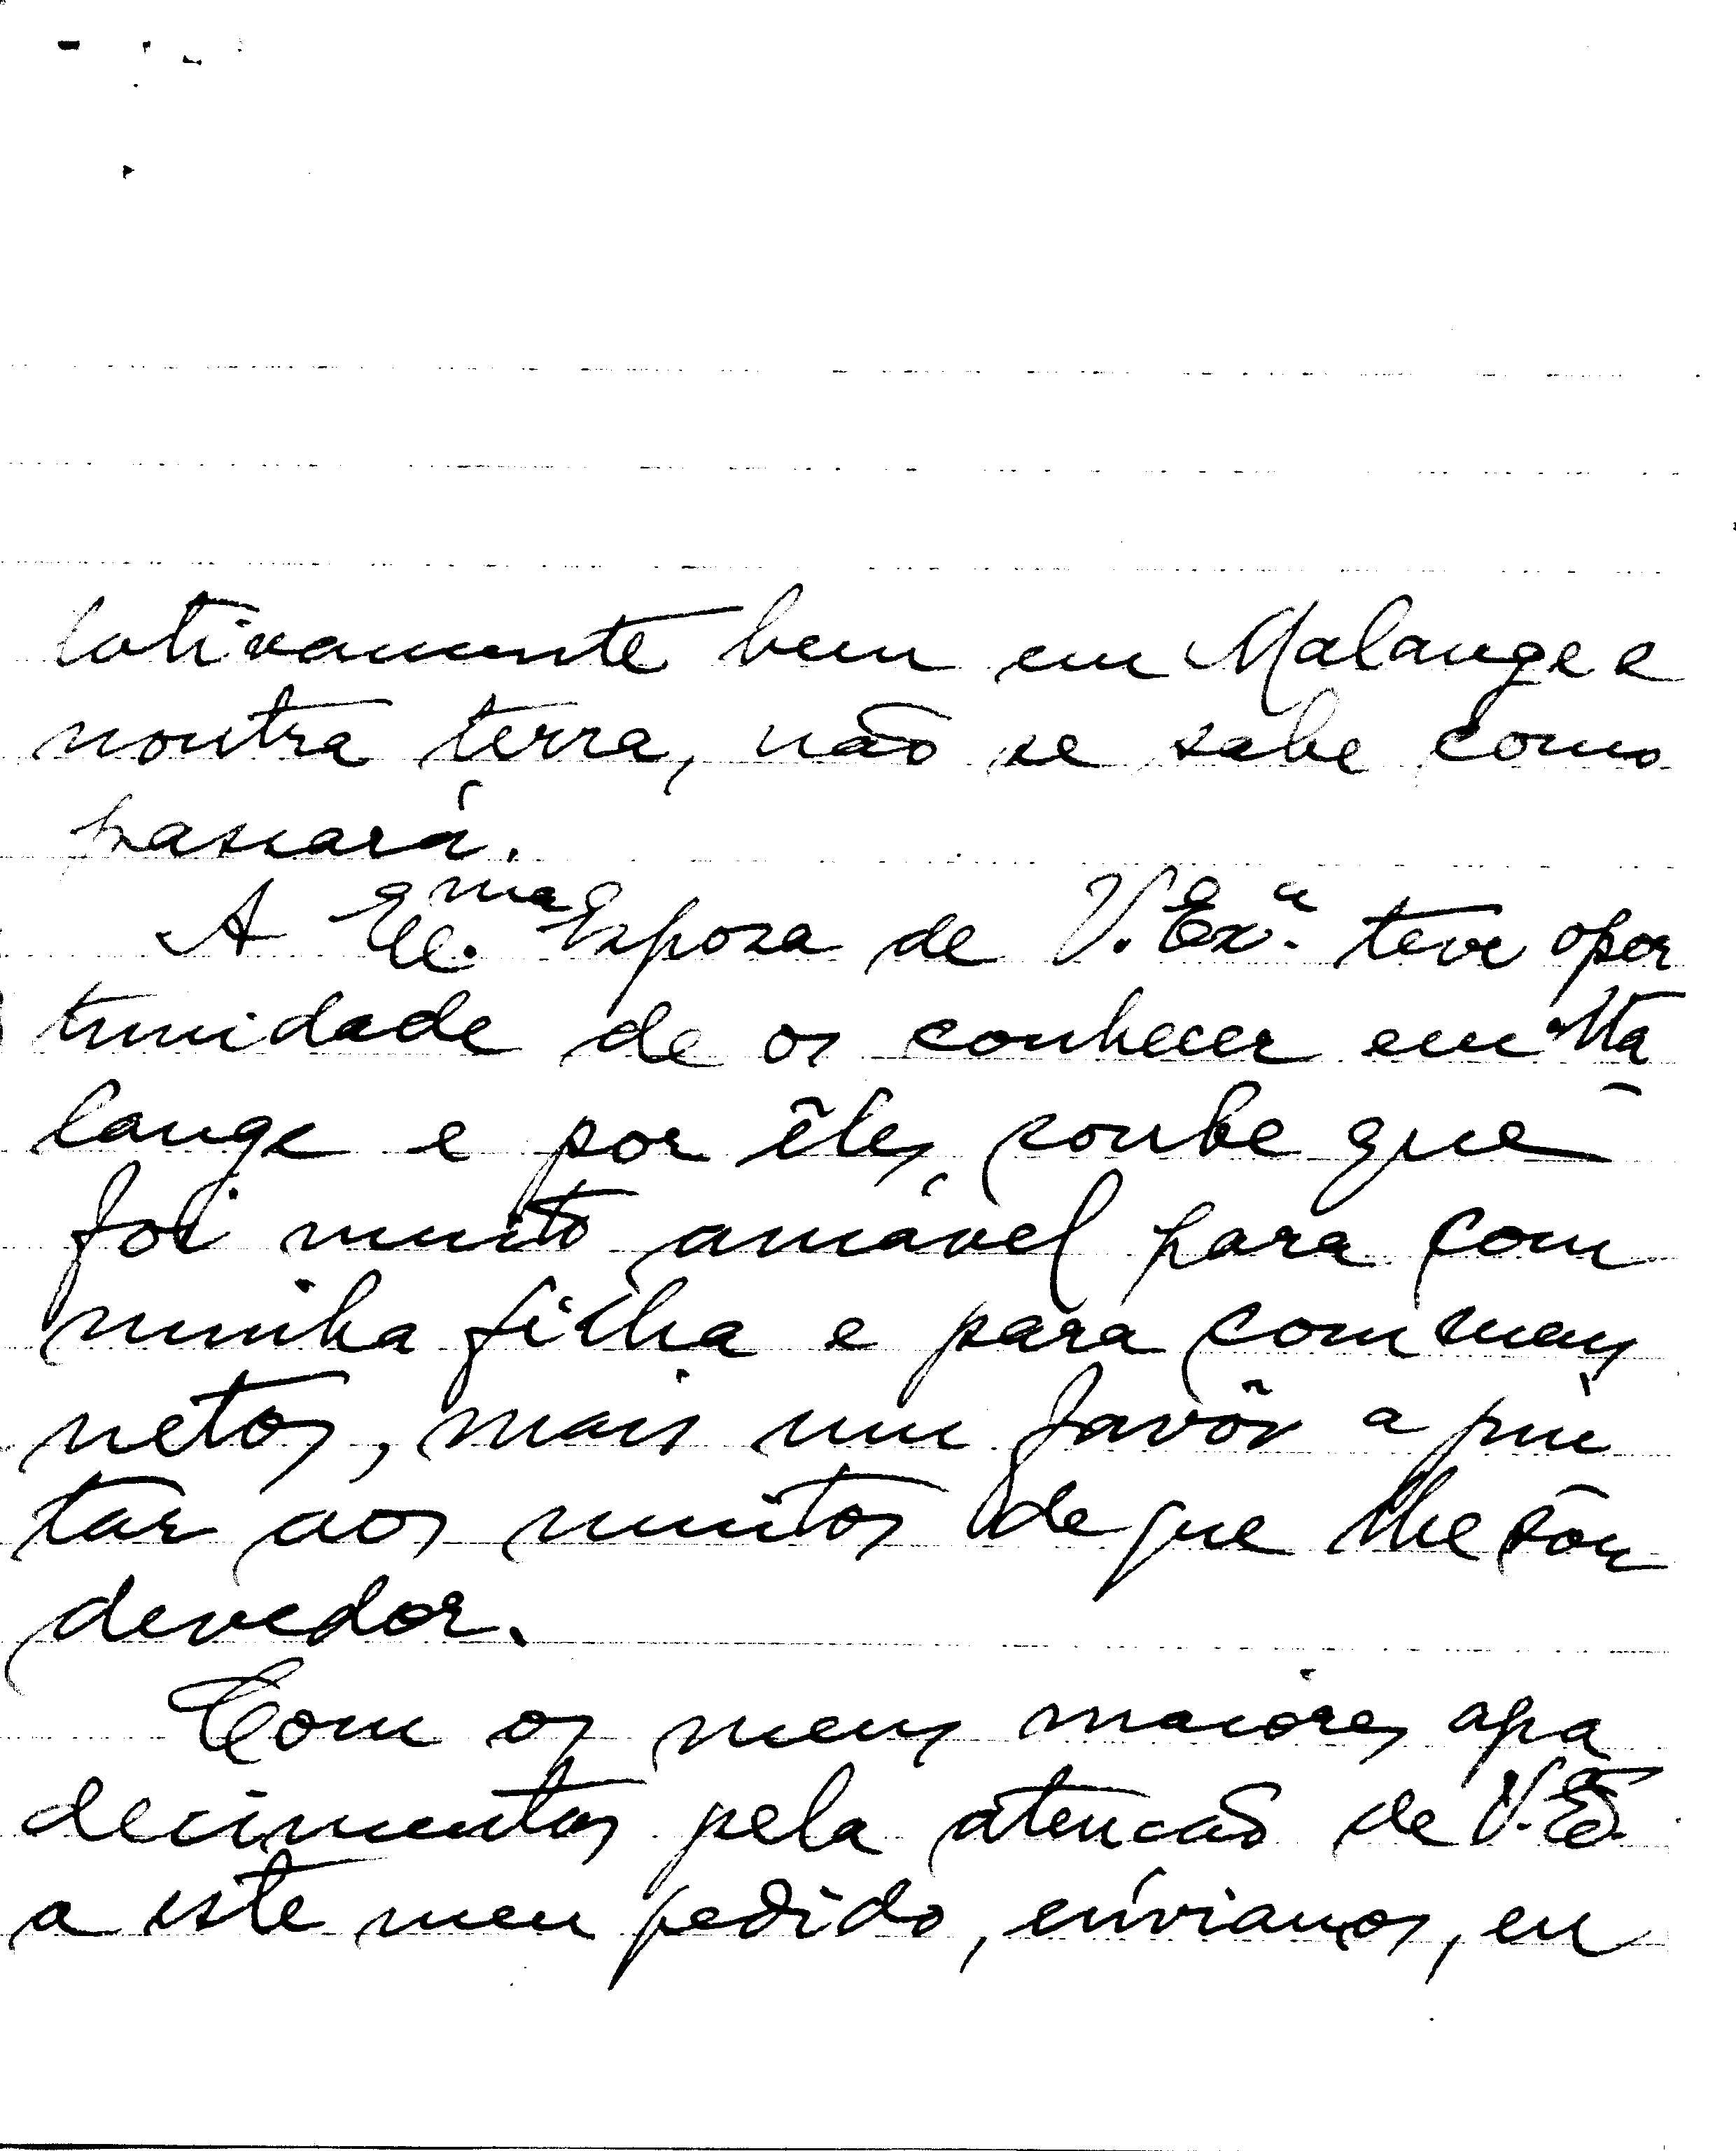 lativamente bem em Malange e
noutra terra, não se sabe como
passará.
A Ex.ma Esposa de V. Ex.a teve opor
tunidade de os conhecer em Ma
lange e por êles, soube que
foi muito amável para com
minha filha e para com meus
netos, mais um favôr a jun
tar aos muitos de que lhe sôu
devedor.
Com os meus maiores agra
decimentos pela atencão de V. Ex.
a este meu pedido, enviamos, eu